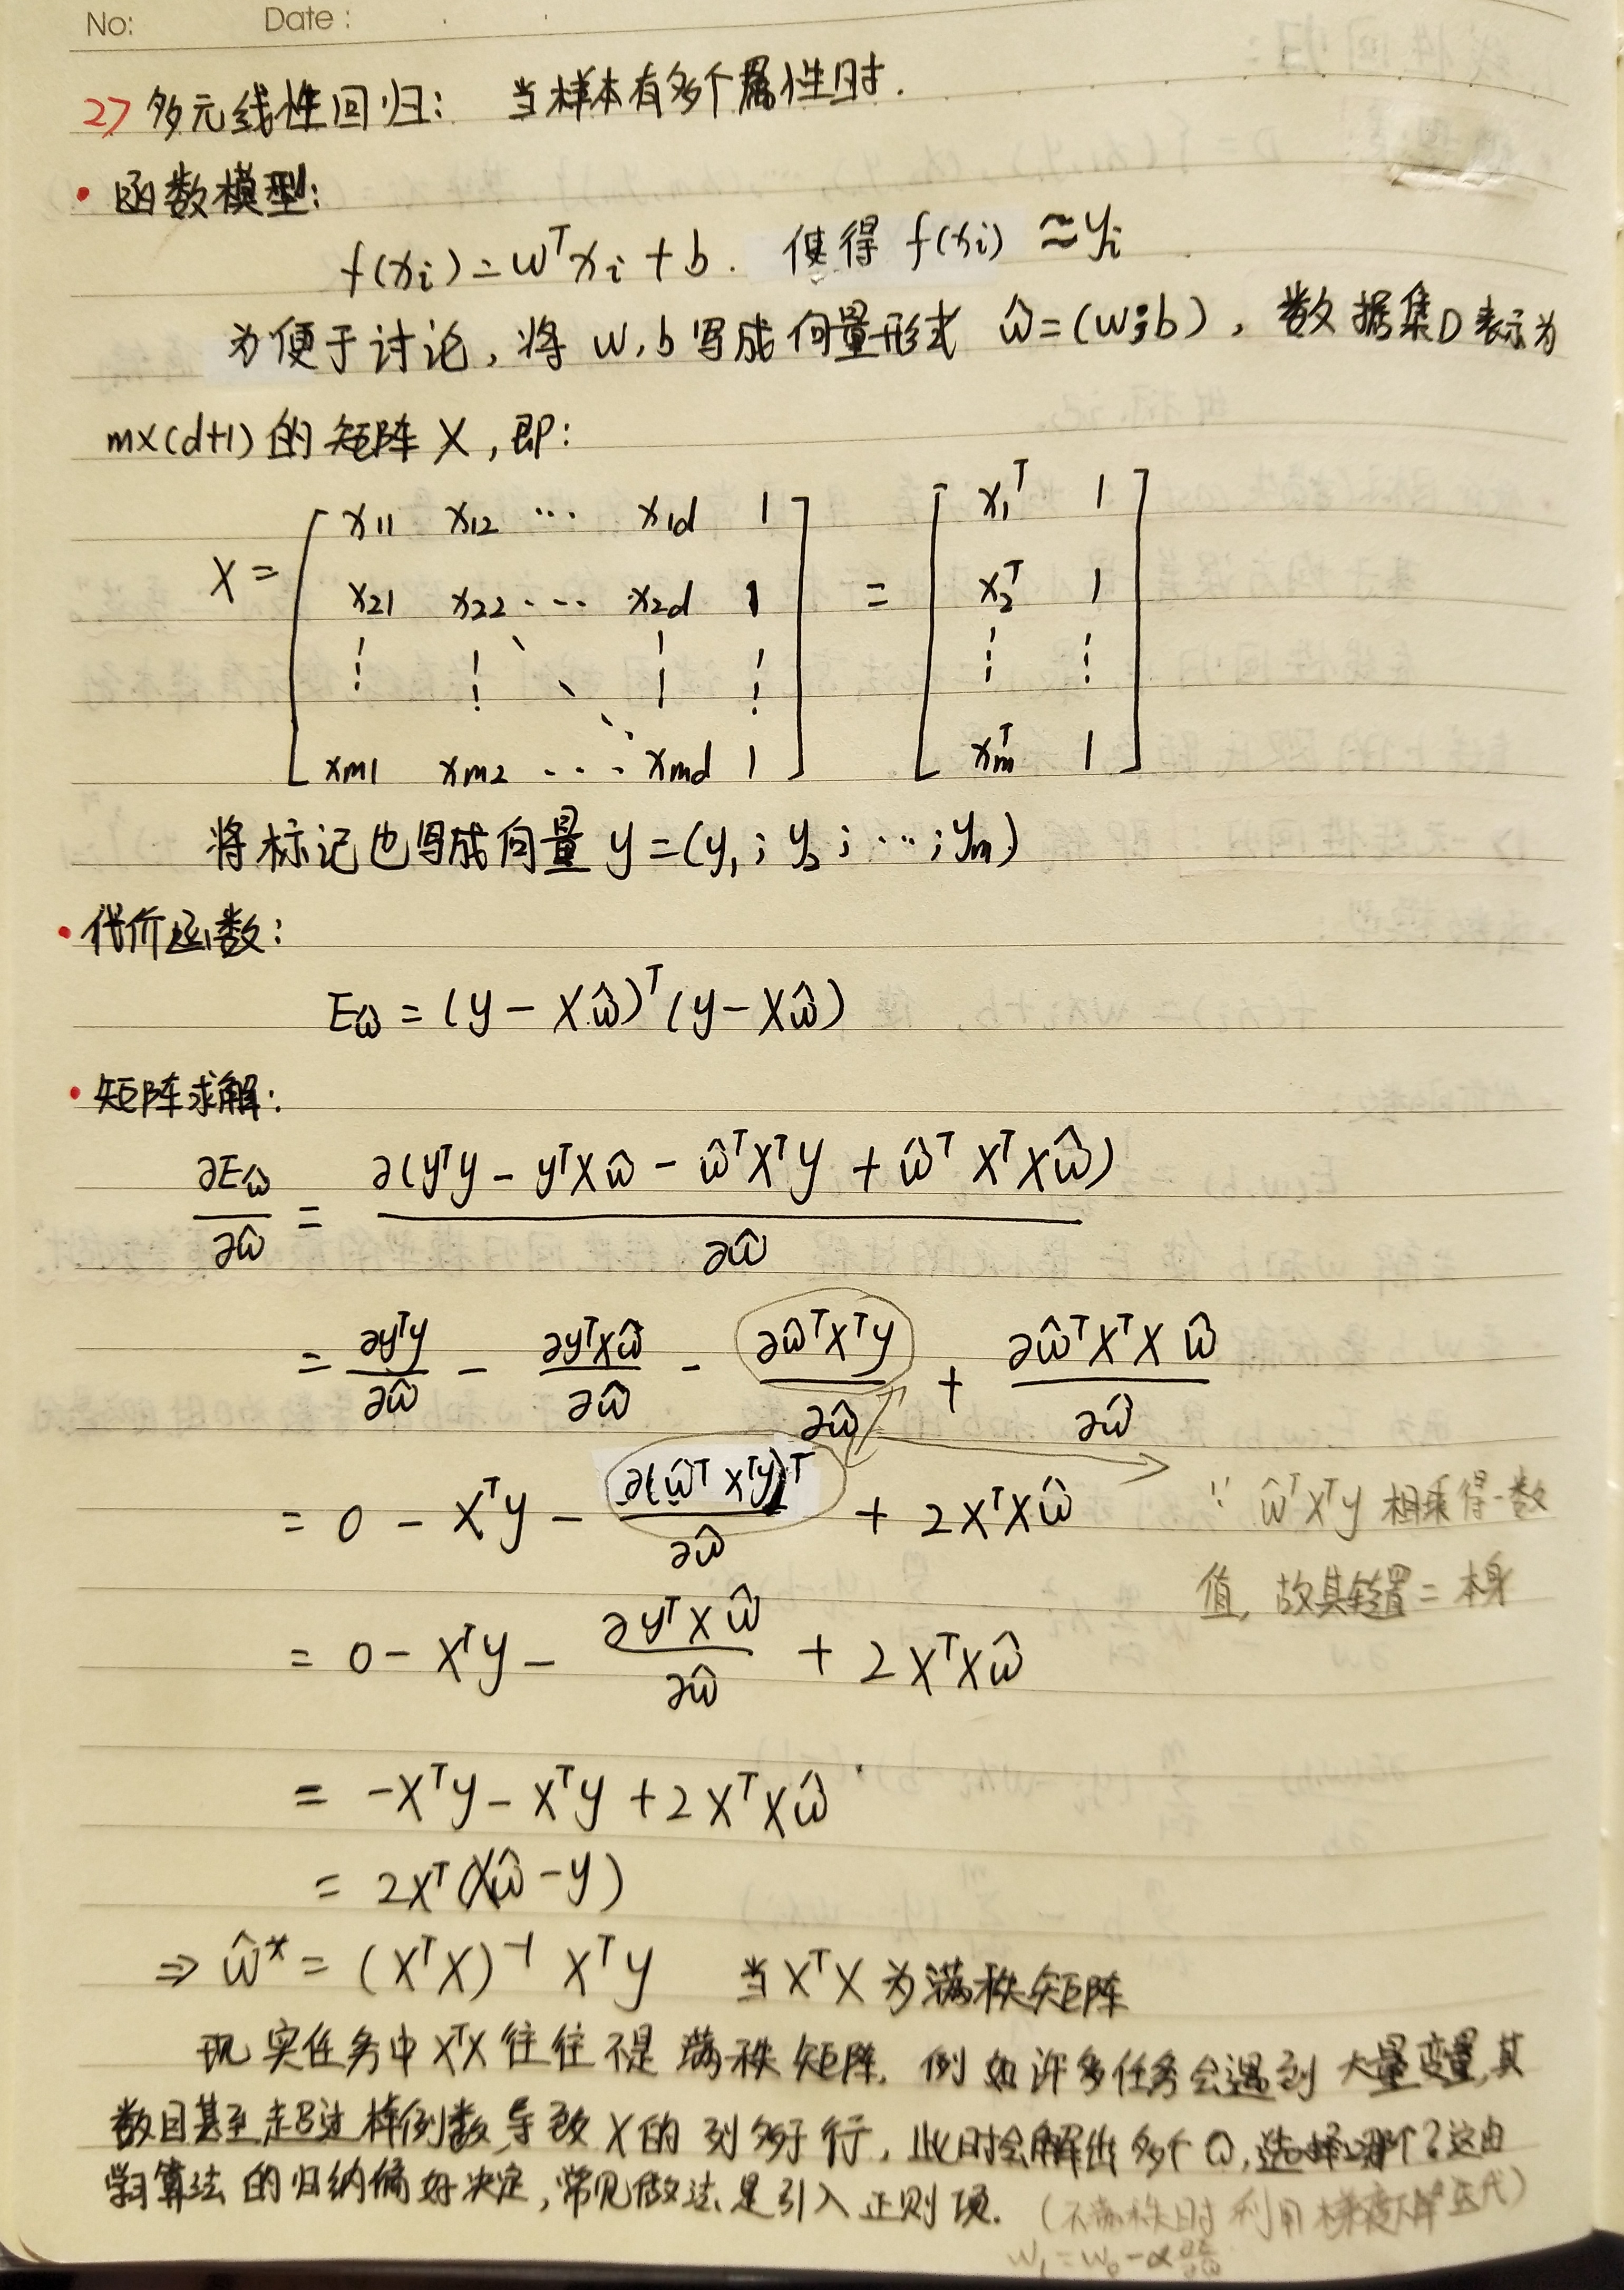 No: Date:
2) 多元线性回归: 当样本有多个属性时.
• 函数模型:
f(xi) = w^T xi + b. 使得 f(xi) ≈ yi
为便于讨论, 将 w, b 写成向量形式 ŵ = (w; b), 数据集D表示为
m×(d+1) 的矩阵 X, 即:
X = [ x11 x12 ⋯ x1d 1 ] = [ x1^T 1 ]
[ x21 x22 ⋯ x2d 1 ] [ x2^T 1 ]
[ ⋮ ⋮ ⋱ ⋮ ⋮ ] [ ⋮ ⋮ ]
[ xm1 xm2 ⋯ xmd 1 ] [ xm^T 1 ]
将标记也写成向量 y = (y1; y2; ⋯; ym)
• 代价函数:
Eŵ = (y - Xŵ)^T (y - Xŵ)
• 矩阵求解:
∂Eŵ/∂ŵ = ∂(y^T y - y^T Xŵ - ŵ^T X^T y + ŵ^T X^T Xŵ)/∂ŵ
= ∂y^T y/∂ŵ - ∂y^T Xŵ/∂ŵ - ∂ŵ^T X^T y/∂ŵ + ∂ŵ^T X^T Xŵ/∂ŵ
= 0 - X^T y - ∂(ŵ^T X^T y)^T/∂ŵ + 2X^T Xŵ ∵ ŵ^T X^T y 相乘得一数
值, 故其转置 = 本身
= 0 - X^T y - ∂y^T Xŵ/∂ŵ + 2X^T Xŵ
= -X^T y - X^T y + 2X^T Xŵ
= 2X^T (Xŵ - y)
⇒ ŵ* = (X^T X)^-1 X^T y 当 X^T X 为满秩矩阵
现实任务中 X^T X 往往不是满秩矩阵. 例如许多任务会遇到大量变量, 其
数目甚至超过样例数, 导致 X 的列多于行, 此时会解出多个 ŵ, 选择哪个? 这由
学习算法的归纳偏好决定, 常见做法是引入正则项. (不满秩时利用梯度下降迭代)
w1 = w0 - α